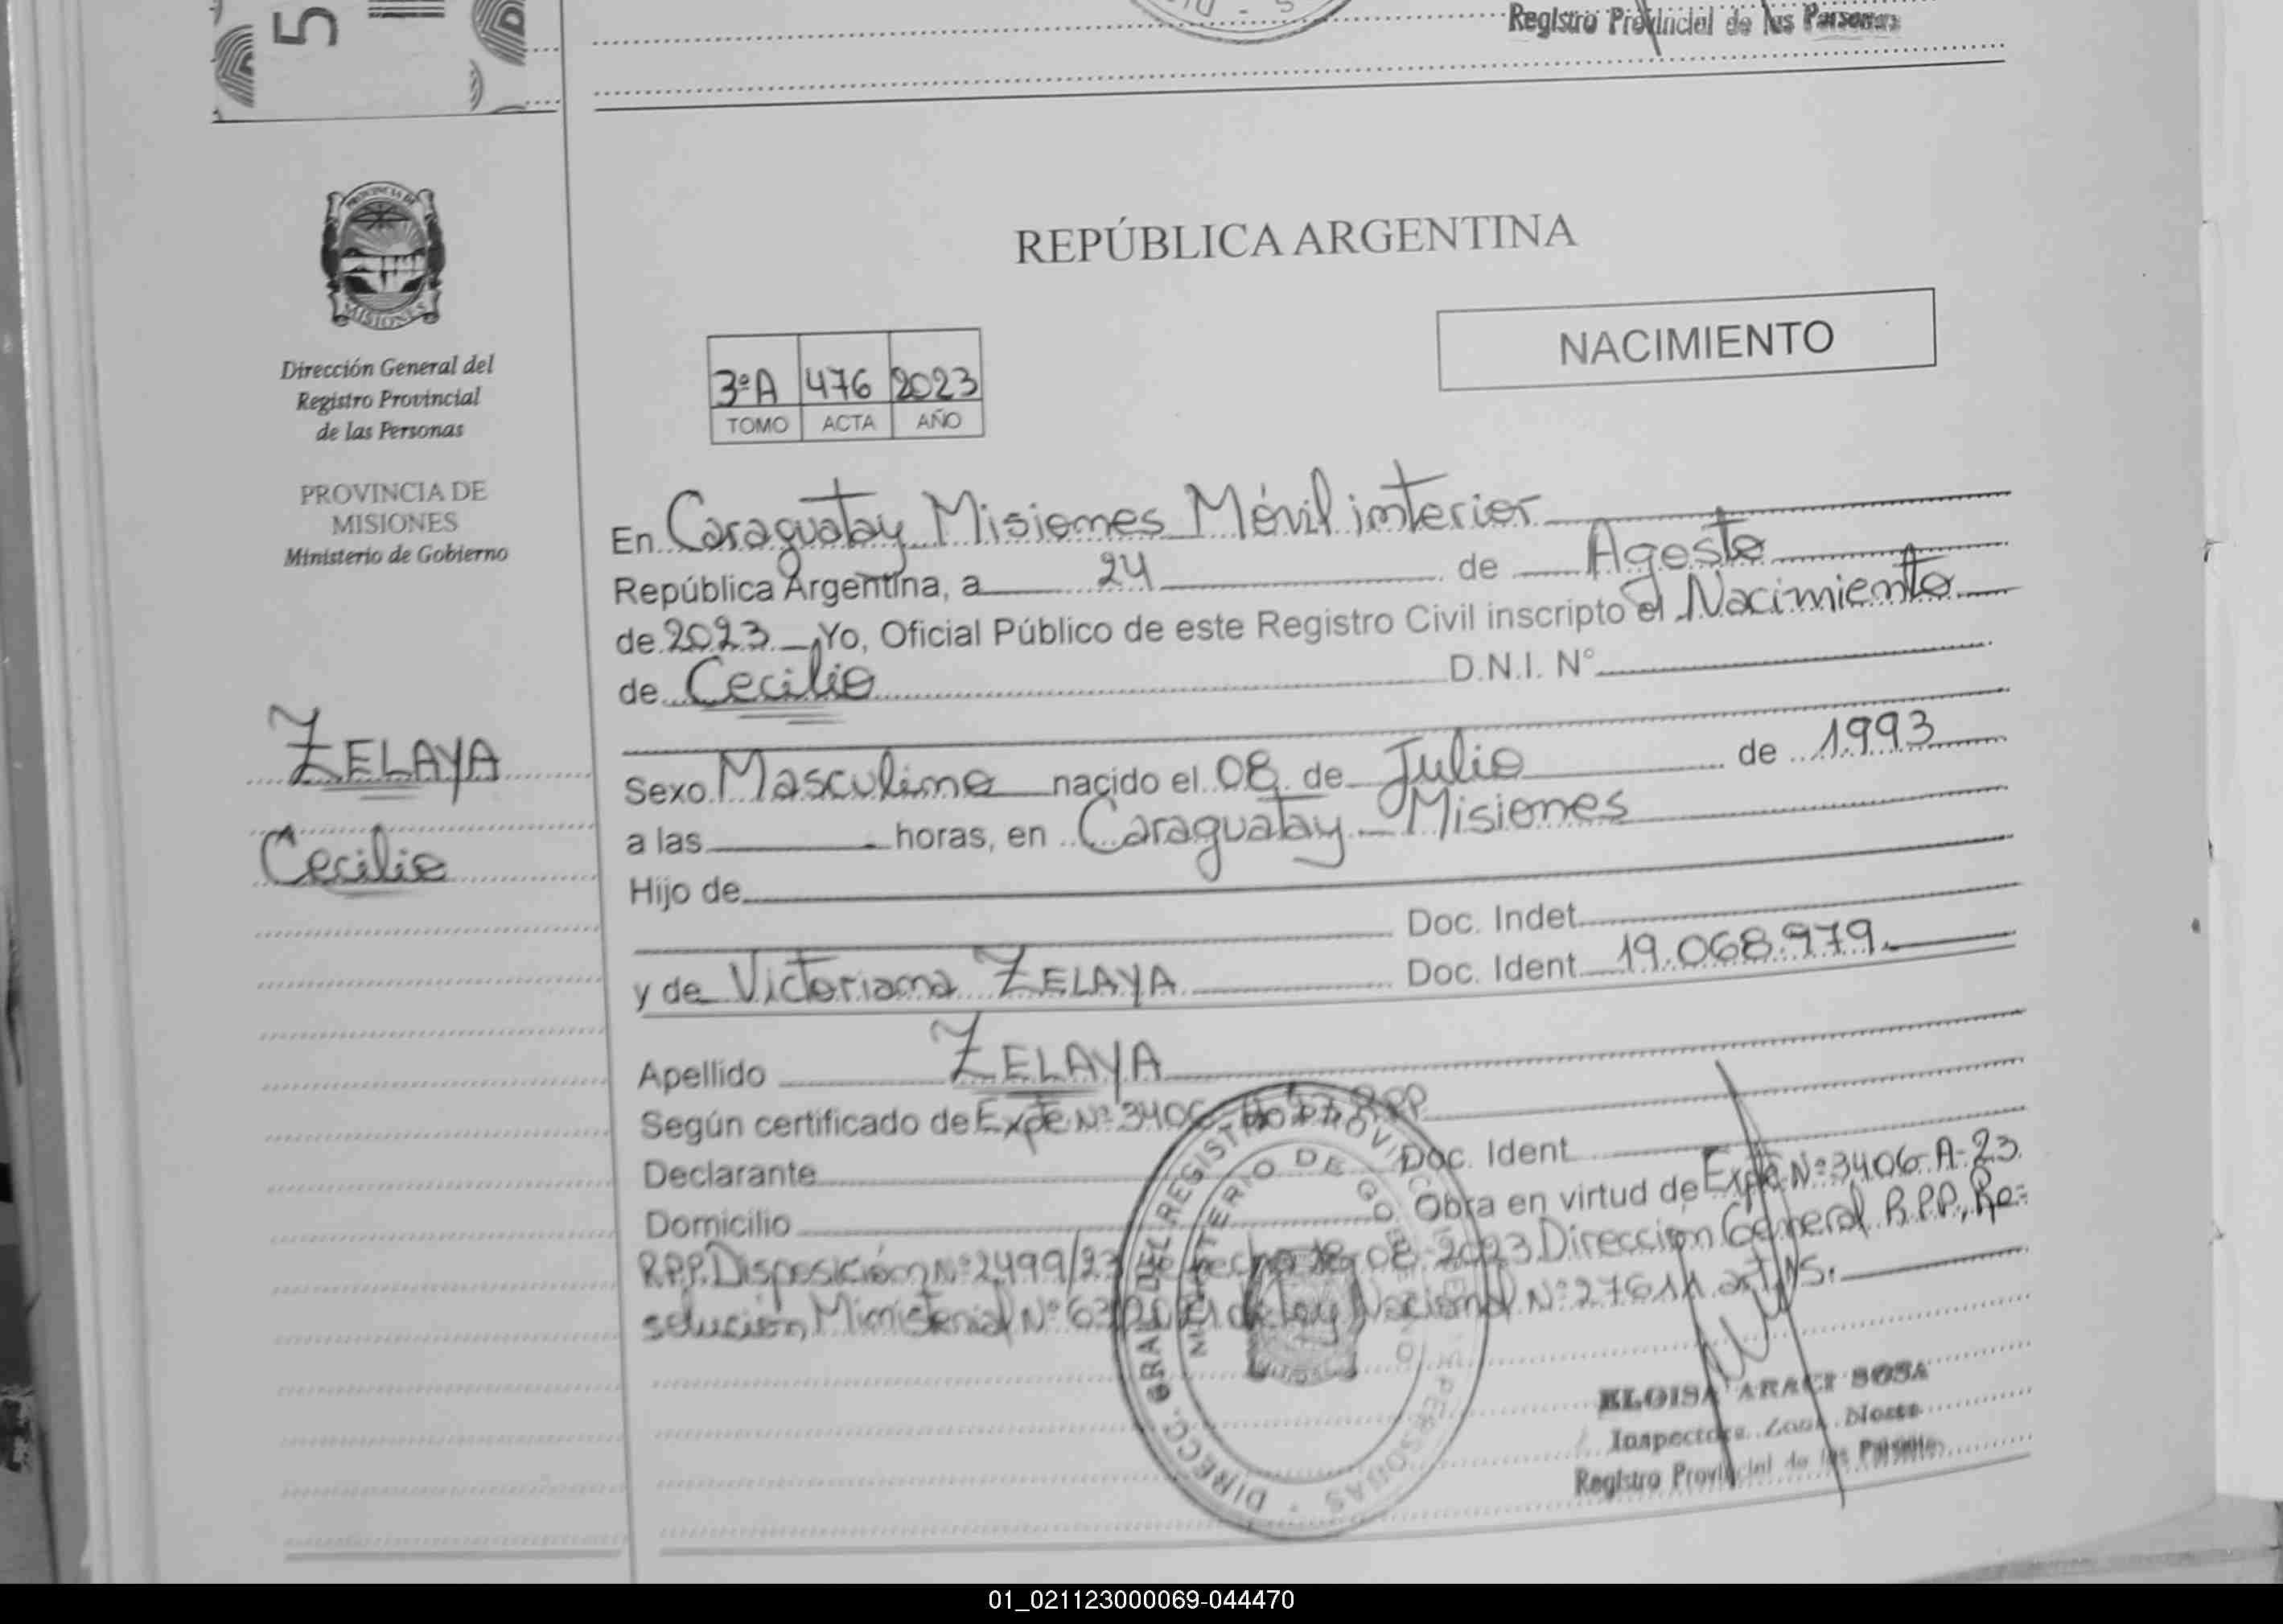 5
Registro Provincial de las Personas
PROVINCIA DE
MISIONES
REPÚBLICA ARGENTINA
NACIMIENTO
Dirección General del
Registro Provincial
de las Personas
PROVINCIA DE
MISIONES
Ministerio de Gobierno
3ºA 476 2023
TOMO ACTA AÑO
ZELAYA
Cecilio
En Caraguatay Misiones Móvil interior
República Argentina, a 24 de Agosto
de 2023 Yo, Oficial Público de este Registro Civil inscripto el Nacimiento
de Cecilio D.N.I. N°
Sexo Masculino nacido el 08 de Julio de 1993
a las horas, en Caraguatay Misiones
Hijo de
Doc. Indet.
y de Victoriana ZELAYA Doc. Ident. 19.068.979.
Apellido ZELAYA
Según certificado de Expte Nº 3406 RPP
Declarante Doc. Ident
Domicilio Obra en virtud de Expte Nº 3406-A-23
R.P.P. Disposición Nº 2499/23 de fecha 18-08-2023 Dirección General R.P.P., Re=
solución Ministerial Nº Ley Nacional Nº 27611 art.
DIRECC. GRAL DEL REGISTRO PROVINCIAL DE LAS PERSONAS
MINISTERIO DE GOBIERNO
ELOISA ARACI SOSA
Inspectora Zona Norte
Registro Provincial de las Personas
01_021123000069-044470